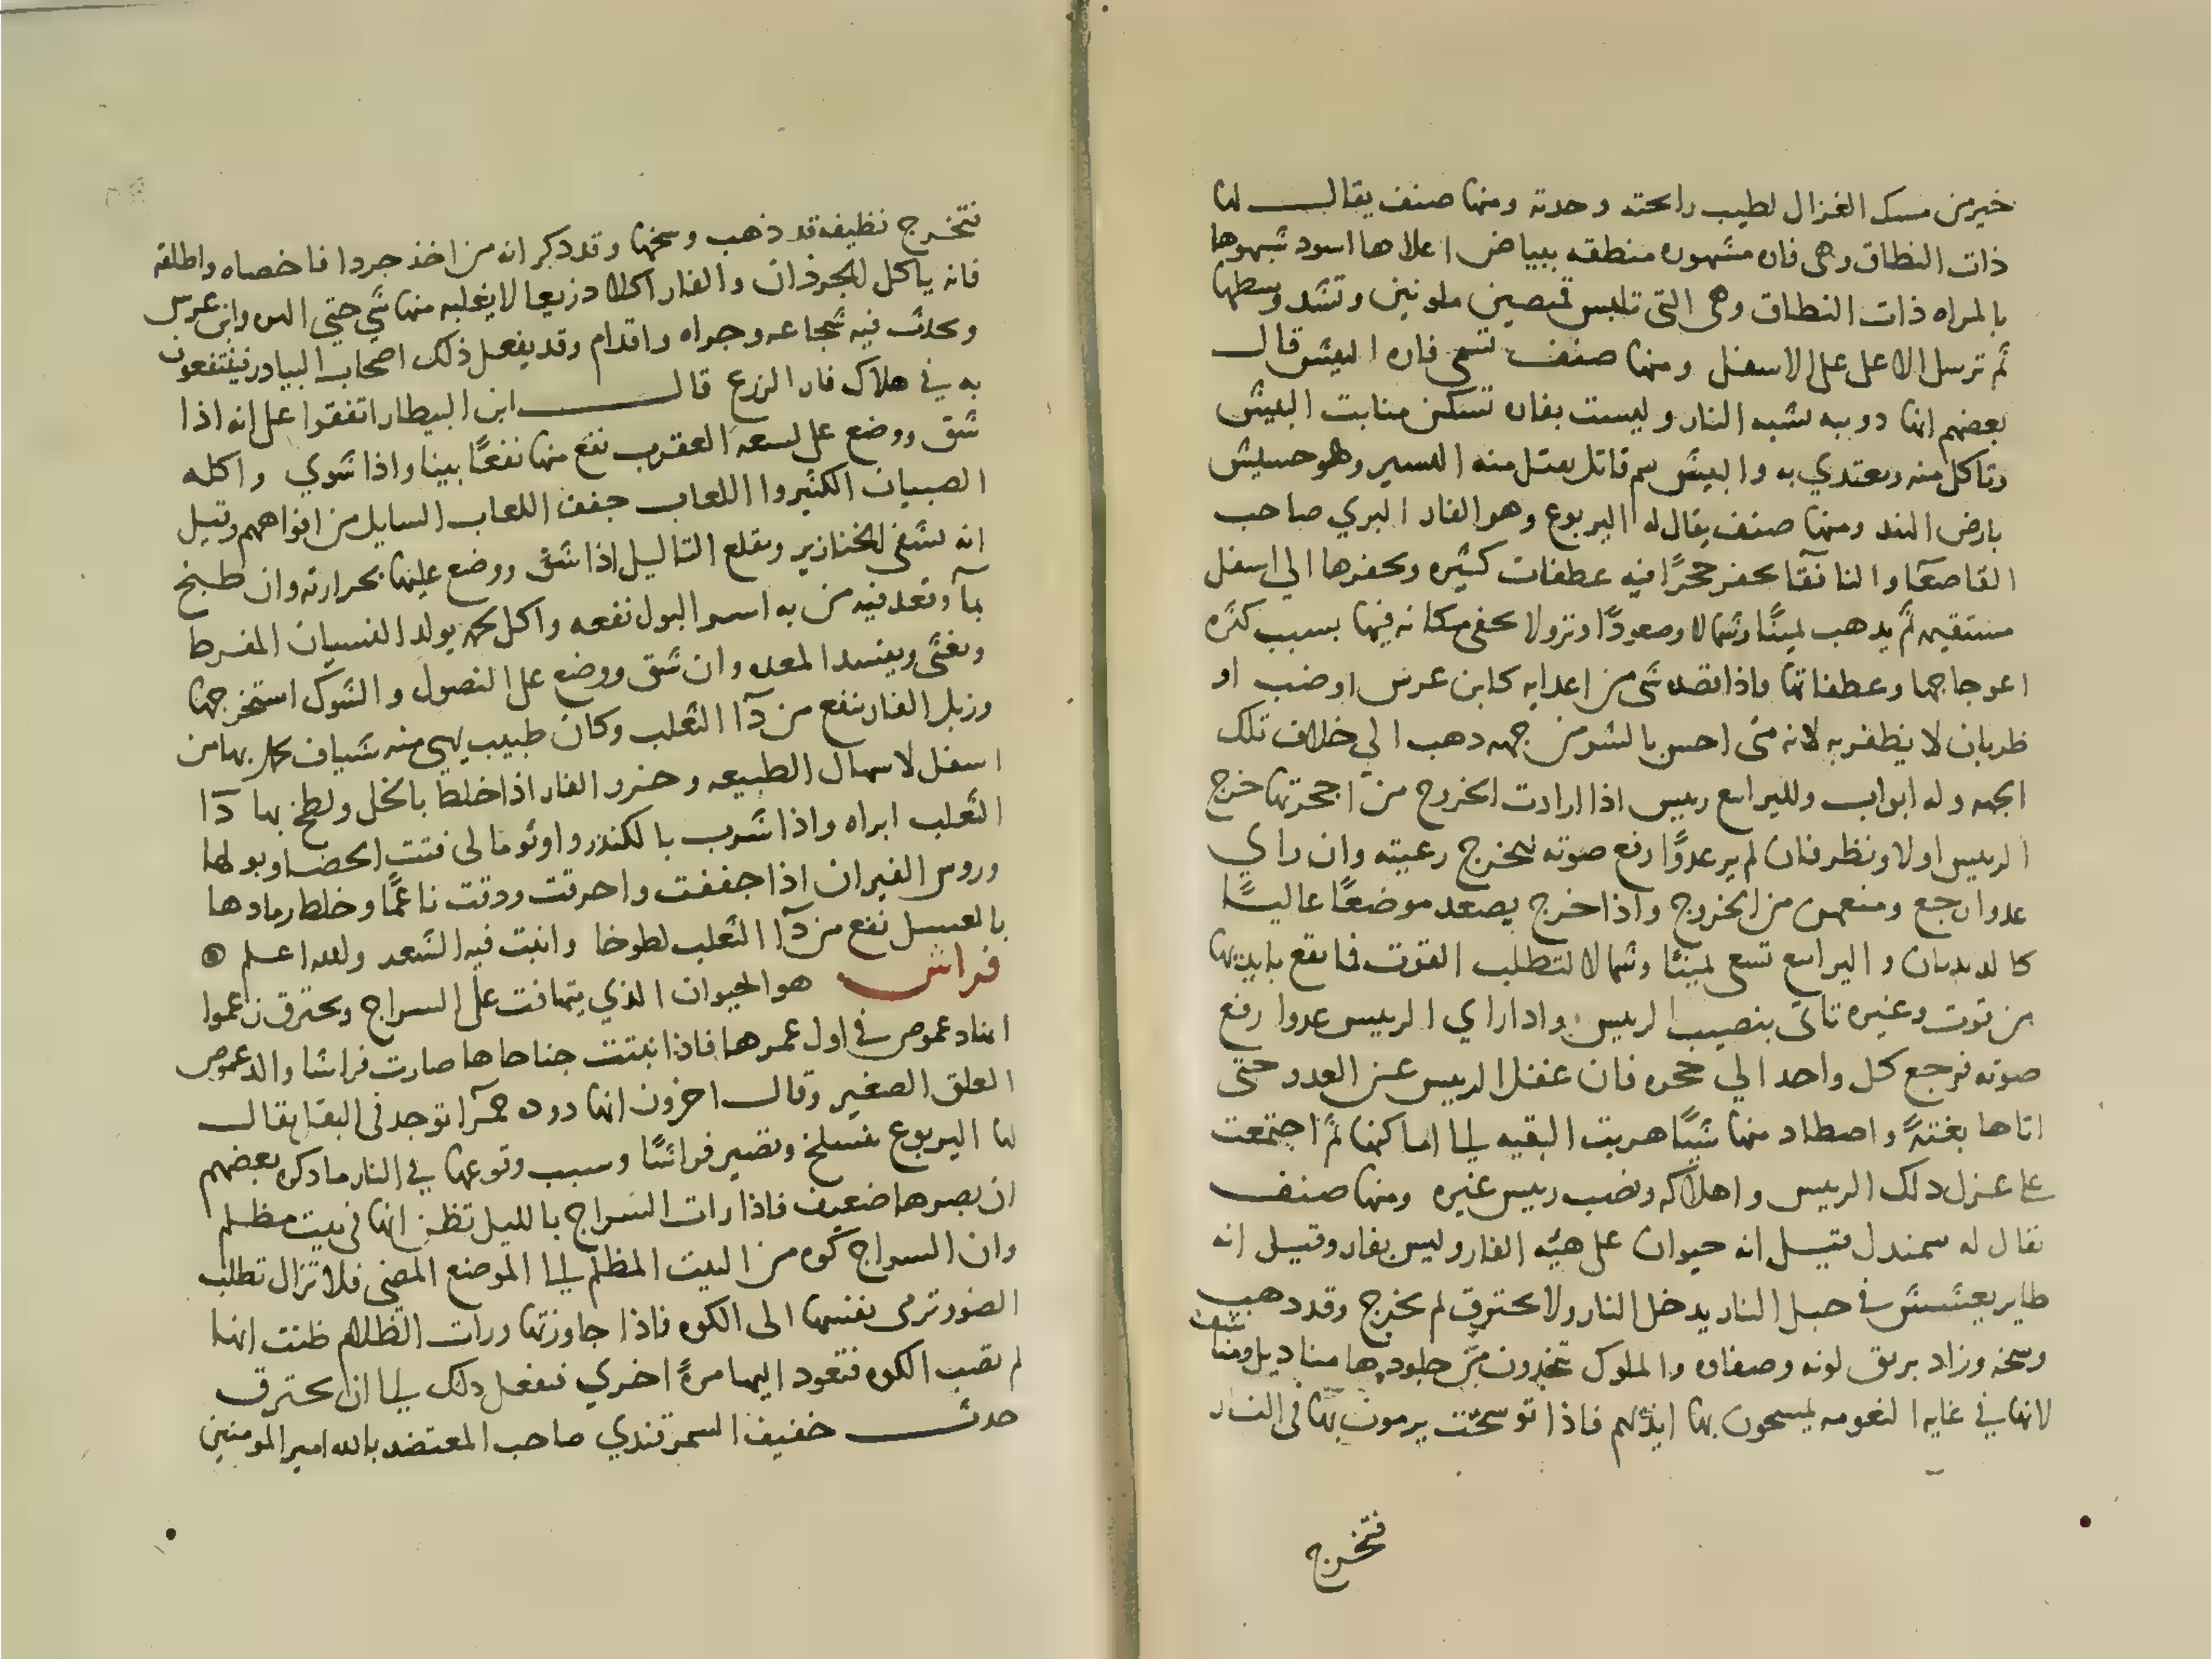 خير من مسك الغزال لطيب رايحته وحدته ومنها صنف يقال لها
ذات النطاق وهى فاره مشهوره منطقه ببياض اعلاها اسود شبهوها
بالمراه ذات النطاق وهى التى تلبس قميصين ملونين وتشد وسطها
ثم ترسل الاعلى على الاسفل ومنها صنف تسمى فاره البيش قال
بعضهم انها دويبه تشبه الفار وليست بفاره تسكن منابت البيش
وتاكل منه وتغتدي به والبيش سم قاتل يقتل منه اليسير وهو حشيش
بارض الهند ومنها صنف يقال له اليربوع وهو الفار البري صاحب
القاصعآ والنافقآ يحفر جحرًا فيه عطفات كثيره ويحفرها الي اسفل
مستقيمه ثم يدهب يمينًا وشمالا وصعودًا ونزولا يخفى مكانه فيها بسبب كثره
اعوجاجها وعطفاتها واذا قصده شى من اعدايه كابن عرس او ضب او
ظربان لا يظفر به لانه متى احس بالشر من جهه دهب الي خلاف تلك
الجهه وله ابواب ولليرابيع رييس اذا ارادت الخروج من اجحرتها خرج
الرييس اولا ونظر فان لم ير عدوًا رفع صوته ليخرج رعيته وان راي
عدوا رجع ومنعهن من الخروج واذا خرج يصعد موضعًا عاليًا
كالديدبان واليرابيع تسعى يمينًا وشمالا لتطلب القوت فما يقع بايديها
من قوت وغيره تاتى بنصيب الرييس وادا راي الرييس عدوا رفع
صوته فرجع كل واحد الي جحره فان غفل الرييس عن العدو حتى
اتاها بغتةً واصطاد منها شيًا هربت البقيه الى اماكنها ثم اجتمعت
على عزل دلك الرييس واهلاكه ونصب رييس غيره ومنها صنف
يقال له سمندل قيل انه حيوان على هيئه الفار وليس بفار وقيل انه
طاير يعشش فى جبل النار يدخل النار ولا يحترق ثم يخرج وقد دهب
وسخه وزاد بريق لونه وصفاه والملوك يتخدون من جلودها مناديل ومناشف
لانها في غايه النعومه يمسحون بها ايديهم فاذا توسخت يرمون بها فى النار
فتخرج
فتخرج نظيفه قد ذهب وسخها وقد دكر انه من اخذ جردا فاخصاه واطلقه
فانه ياكل الجرذان والفار اكلا دزيعا لا يغلبه منها شي حتي الهر وابن عرس
ويحدث فيه شجاعه وجراه واقدام وقد يفعل ذلك اصحاب البيادر فينتفعون
به في هلاك فار الزرع قال ابن البيطار اتفقوا على انه اذا
شق ووضع على لسعه العقرب نفع منها نفعًا بينا واذا شوي واكله
الصبيان الكثيروا اللعاب جفف اللعاب السايل من افواههم وقيل
انه يشفى الخنازير ويقلع التاليل اذا شق ووضع عليها بحرارته وان طبخ
بمآ وقعد فيه من به اسر البول نفعه واكل لحمه يولد النسيان المفرط
ويغثى ويفسد المعده وان شق ووضع على النصول والشوك استخرجها
وزبل الفار ينفع من دآ الثعلب وكان طبيب يهيى منه شياف يحمل بها من
اسفل لاسهال الطبيعه وخرو الفار اذا خلط بالخل ولطخ بها دآ
الثعلب ابراه واذا شرب بالكندر واونومالى فتت الحصا وبولها
وروس الفيران اذا جففت واحرقت ودقت ناعمًا وخلط رمادها
بالعسل نفع من دآ الثعلب لطوخا وانبت فيه الشعر والله اعلم
فراش هو الحيوان الذي يتهافت على السراج ويحترق زعموا
انها دعموص في اول عمرها فاذا نبتت جناحاها صارت فراشا والدعموص
العلق الصغير وقال اخرون انها دوده حمرآ توجد فى البقل يقال
لها اليربوع فتسلخ وتصير فراشًا وسبب وقوعها في النار ما دكره بعضهم
ان بصرها ضعيف فاذا رات السراج بالليل تظن انها فى بيت مظلم
وان السراج كوه من البيت المظلم الى الموضع المضى فلا تزال تطلب
الضور ترمى بنفسها الى الكوه فاذا جاوزتها ورات الظلام ظنت انها
لم تصب الكوه فتعود اليها مرةً اخري فتفعل دلك الى ان تحترق
حدث خفيف السمرقندي صاحب المعتضد بالله امير المومنين